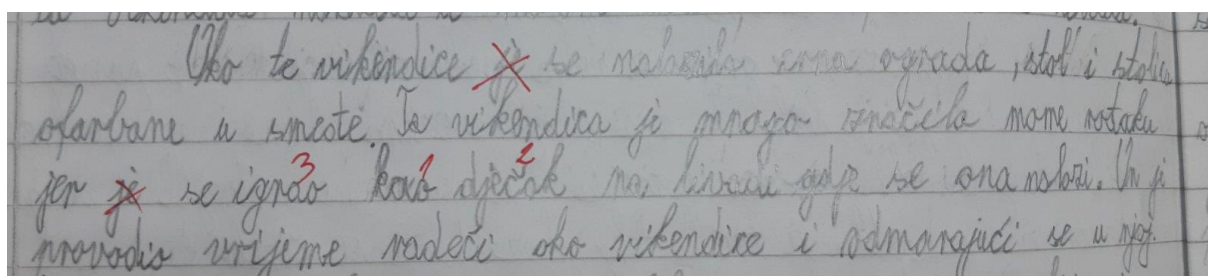 Oko te vikendice je se nalazila crna ograda, stol i stolica
ofarbane u smeđe. Ta vikendica je mnogo značila mome rođaku
jer je se igrao 3 kao 1 dječak 2 na livadi gdje se ona nalazi. On je
provodio vrijeme radeći oko vikendice i odmarajući se u njoj.